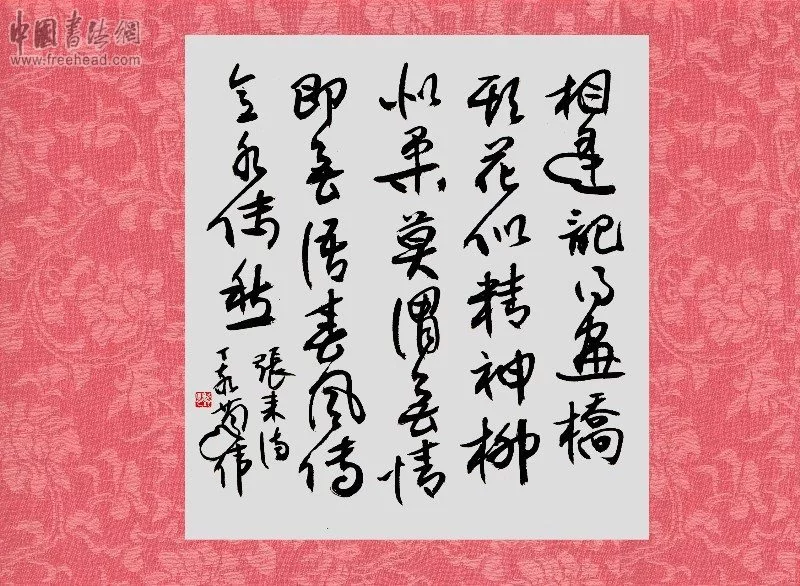 中國書法網
www.freehead.com
相逢記得畫橋
頭花似精神柳
似柔莫謂無情
即無語春風傳
意水傳愁
張耒詩
丁亥